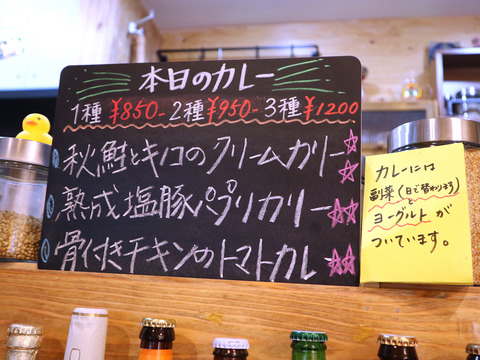 本日のカレー
1種 ¥850- 2種 ¥950- 3種 ¥1200
秋鮭とキノコのクリームカリー☆☆
熟成塩豚パプリカリー☆☆
骨付きチキンのトマトカレ☆☆
カレーには
副菜(日で替わります)
と
ヨーグルトが
ついています。